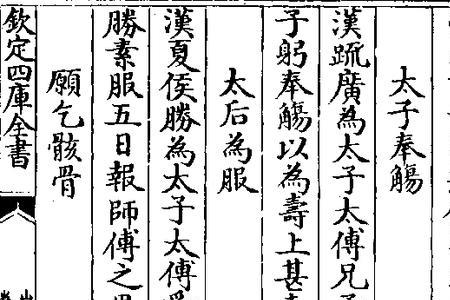 太子奉觴
漢疏廣為太子太傅兄
子躬奉觴以為壽上甚
太后為服
漢夏侯勝為太子太傅
勝素服五日報師傅之
願乞骸骨
欽定四庫全書